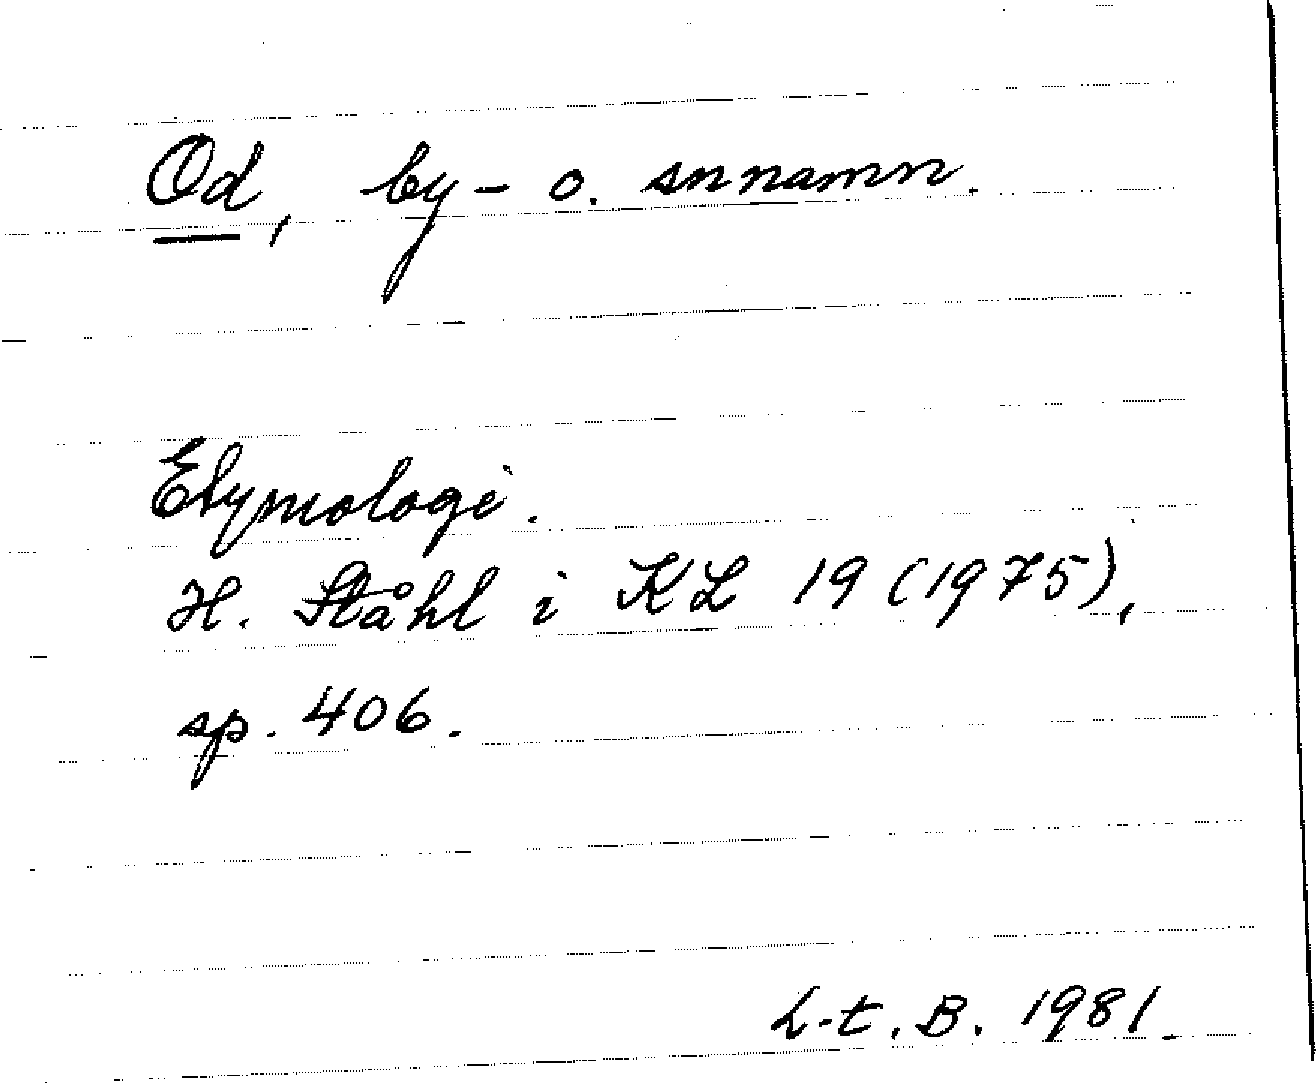 Od, by- o. snnamn.
Etymologi.
H. Ståhl i KL 19 (1975),
sp. 406.
L-t. B. 1981